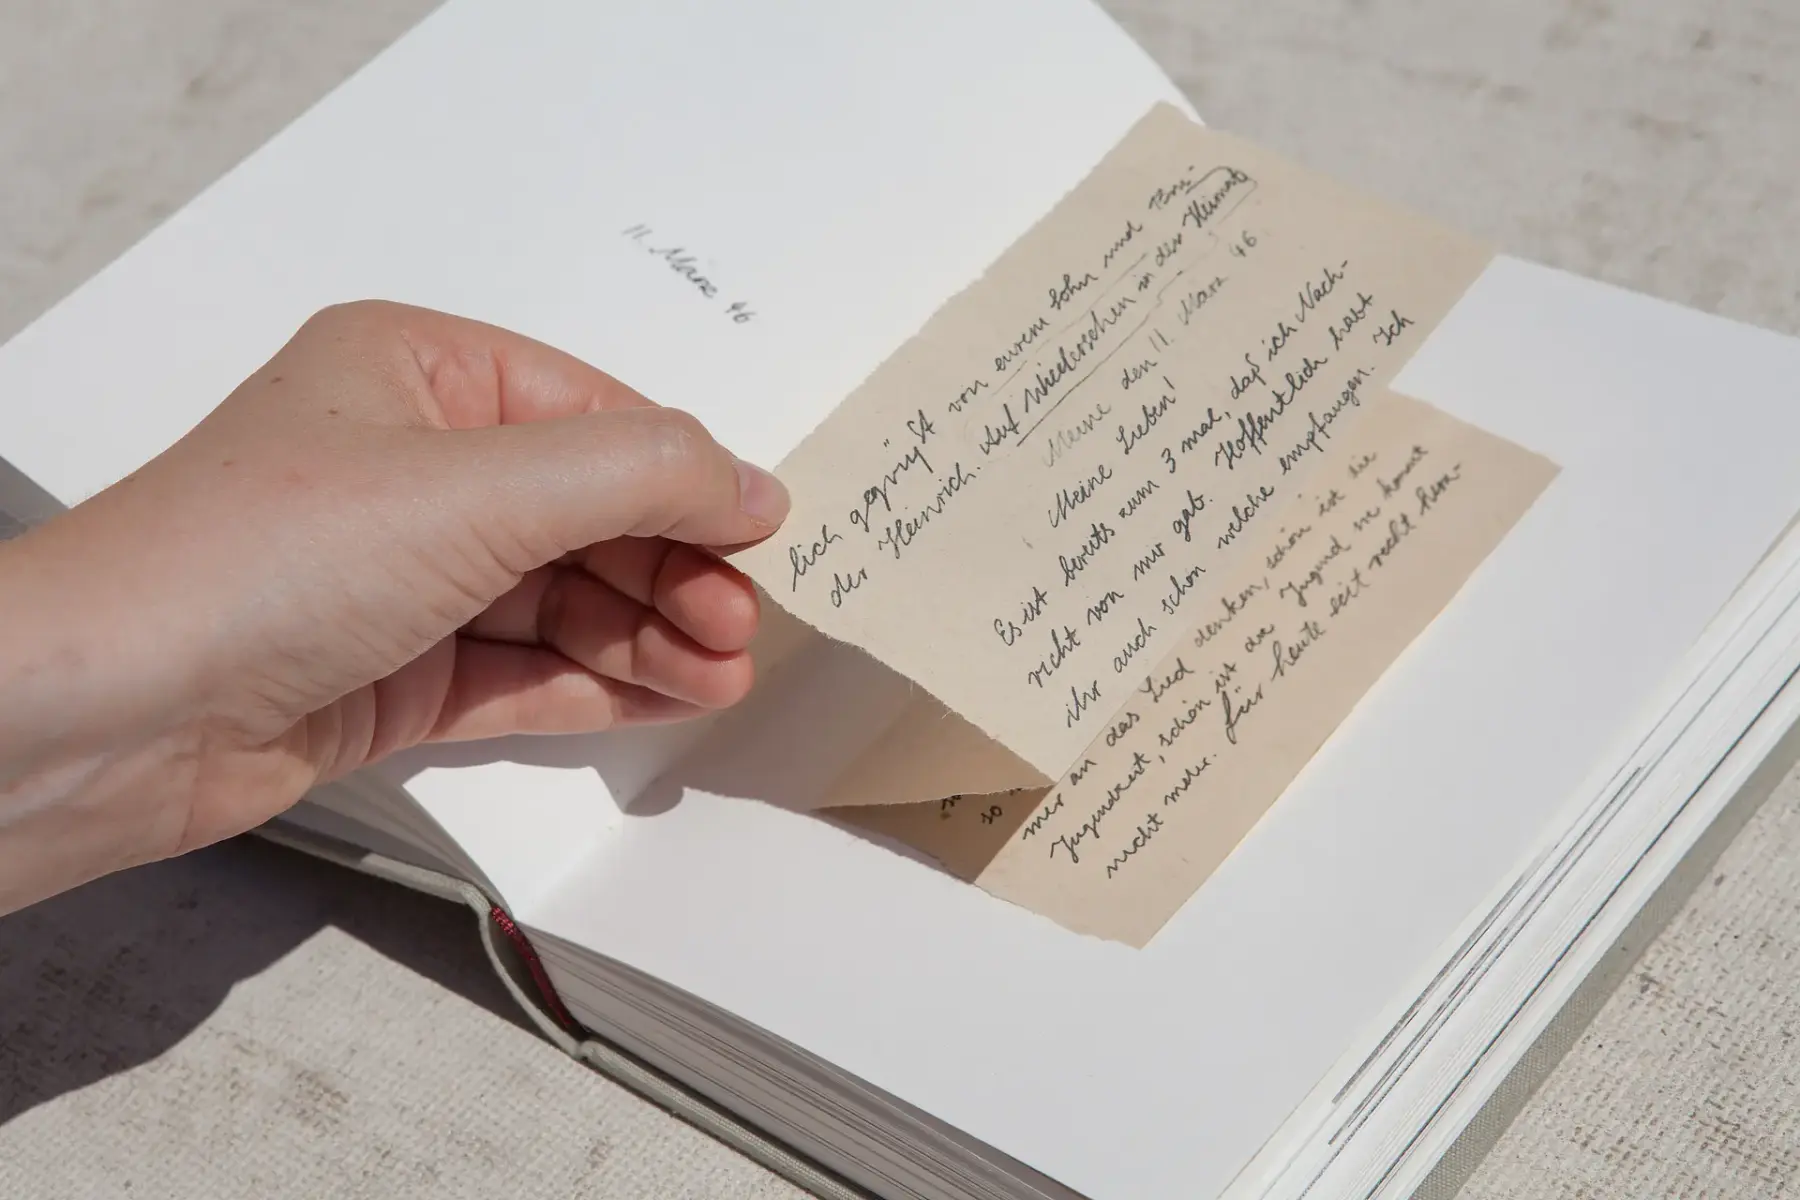 11. März 46
lich gegrüßt von eurem Sohn und Bru-
der Heinrich. Auf Wiedersehen in der Heimat
den 11. März 46.
Meine Lieben!
Es ist bereits zum 3 mal, daß ich Nach-
richt von mir gab. Hoffentlich habt
ihr auch schon welche empfangen. Ich
mer an das Lied denken, schön ist die
Jugendzeit, schön ist die Jugend sie kommt
nicht mehr. Für heute seit recht herz-
so